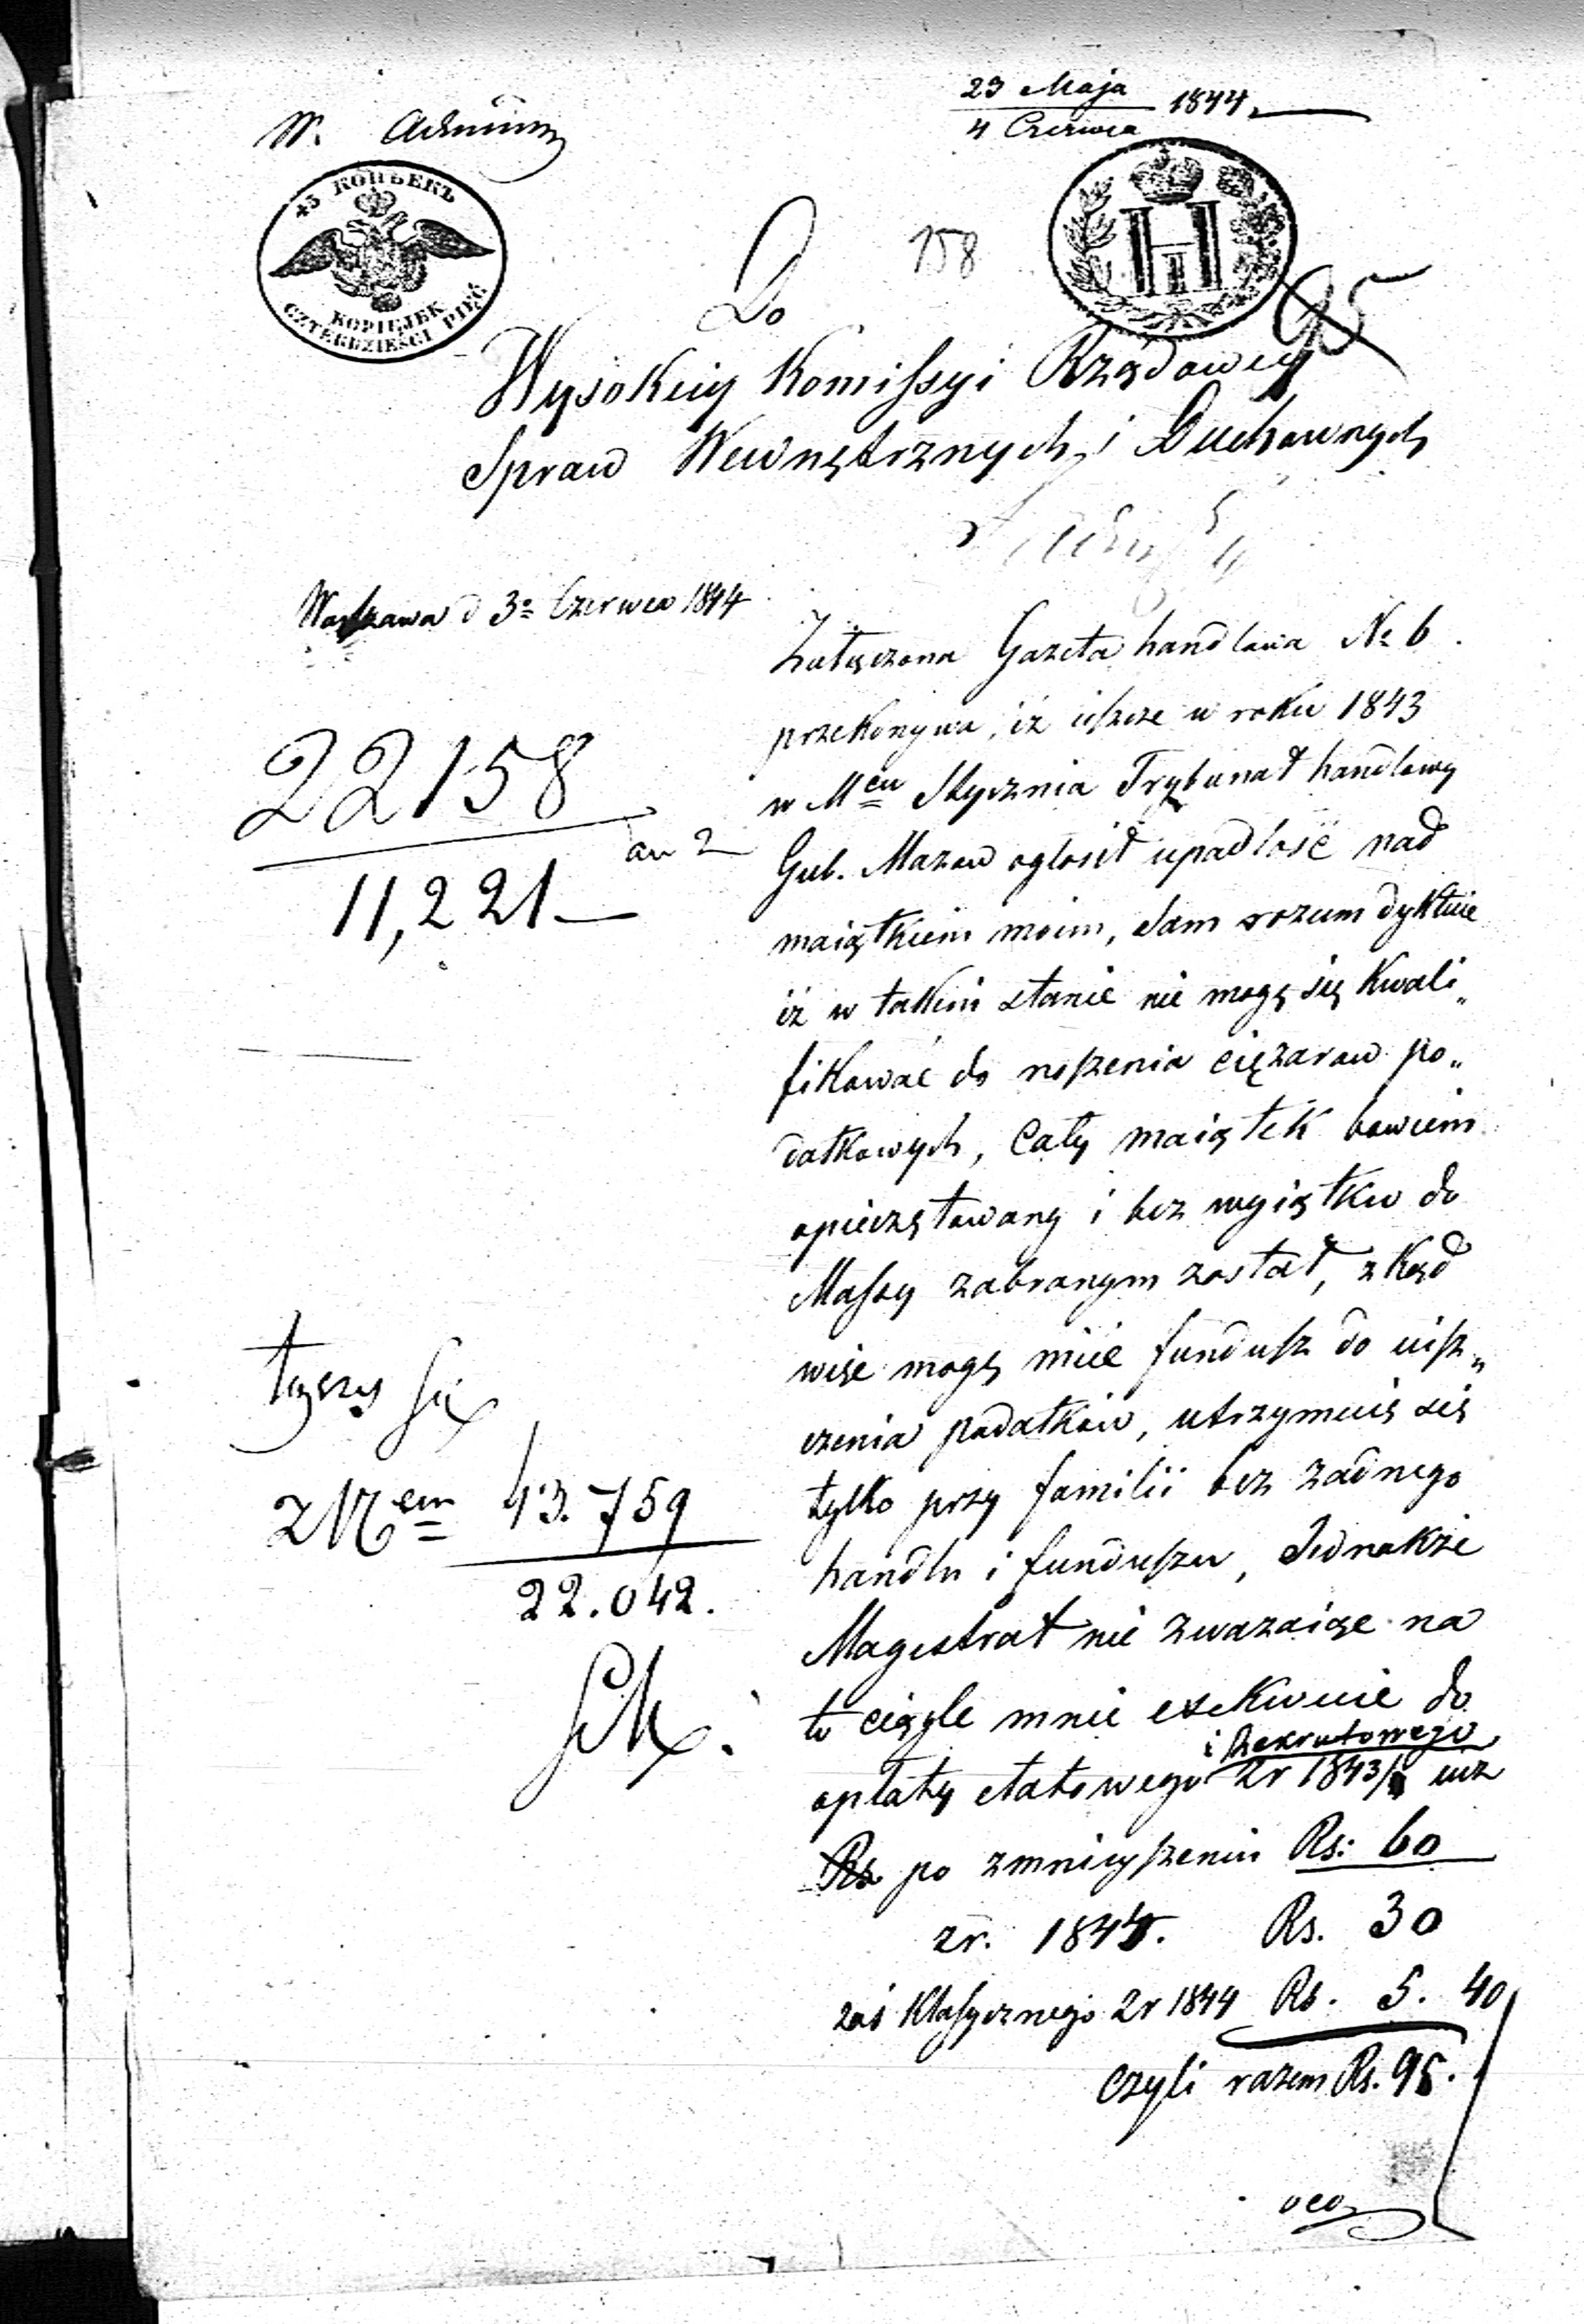 23 Maja
4 Czerwca 1844
W. Admin
45 КОПѢЕКЪ
KOPIEJEK
CZTERDZIEŚCI PIĘĆ
158
Do
95
Wysokiey Komissyi Rządowey
Spraw Wewnętrznych i Duchownych
Warszawa d 3º Czerwca 1844
Załączona Gazeta handlowa Nº 6.
przekonywa, iż ieszcze w roku 1843
w Mcu Stycznia Trybunał handlowy
Gub. Mazow ogłosił upadłość nad
22158
an 2
11,221
maiątkiem moim, Sam rozum dyktuie
iż w takim stanie nie mogę się kwali„
fikować do noszenia ciężarow po„
datkowych, Cały maiątek bowiem
opieczętowany i bez wyiątku do
Massy zabranym został, zkąd
więc mogę mieć fundusz do uisz„
czenia podatków, utrzymuię się
tylko przy familii bez żadnego
handlu i funduszu, Jednakże
z Nem 43.759
22.042.
Magistrat nie zważaiąc na
to ciągle mnie exekwuie do
i Rekrutowego
opłaty etatowego z r 1843/4 iuż
Rs po zmnieyszeniu Rs: 60
z r. 1844. Rs. 30
zaś Klassycznego z r 1844 Rs. 5. 40
czyli razem Rs. 95.
oco